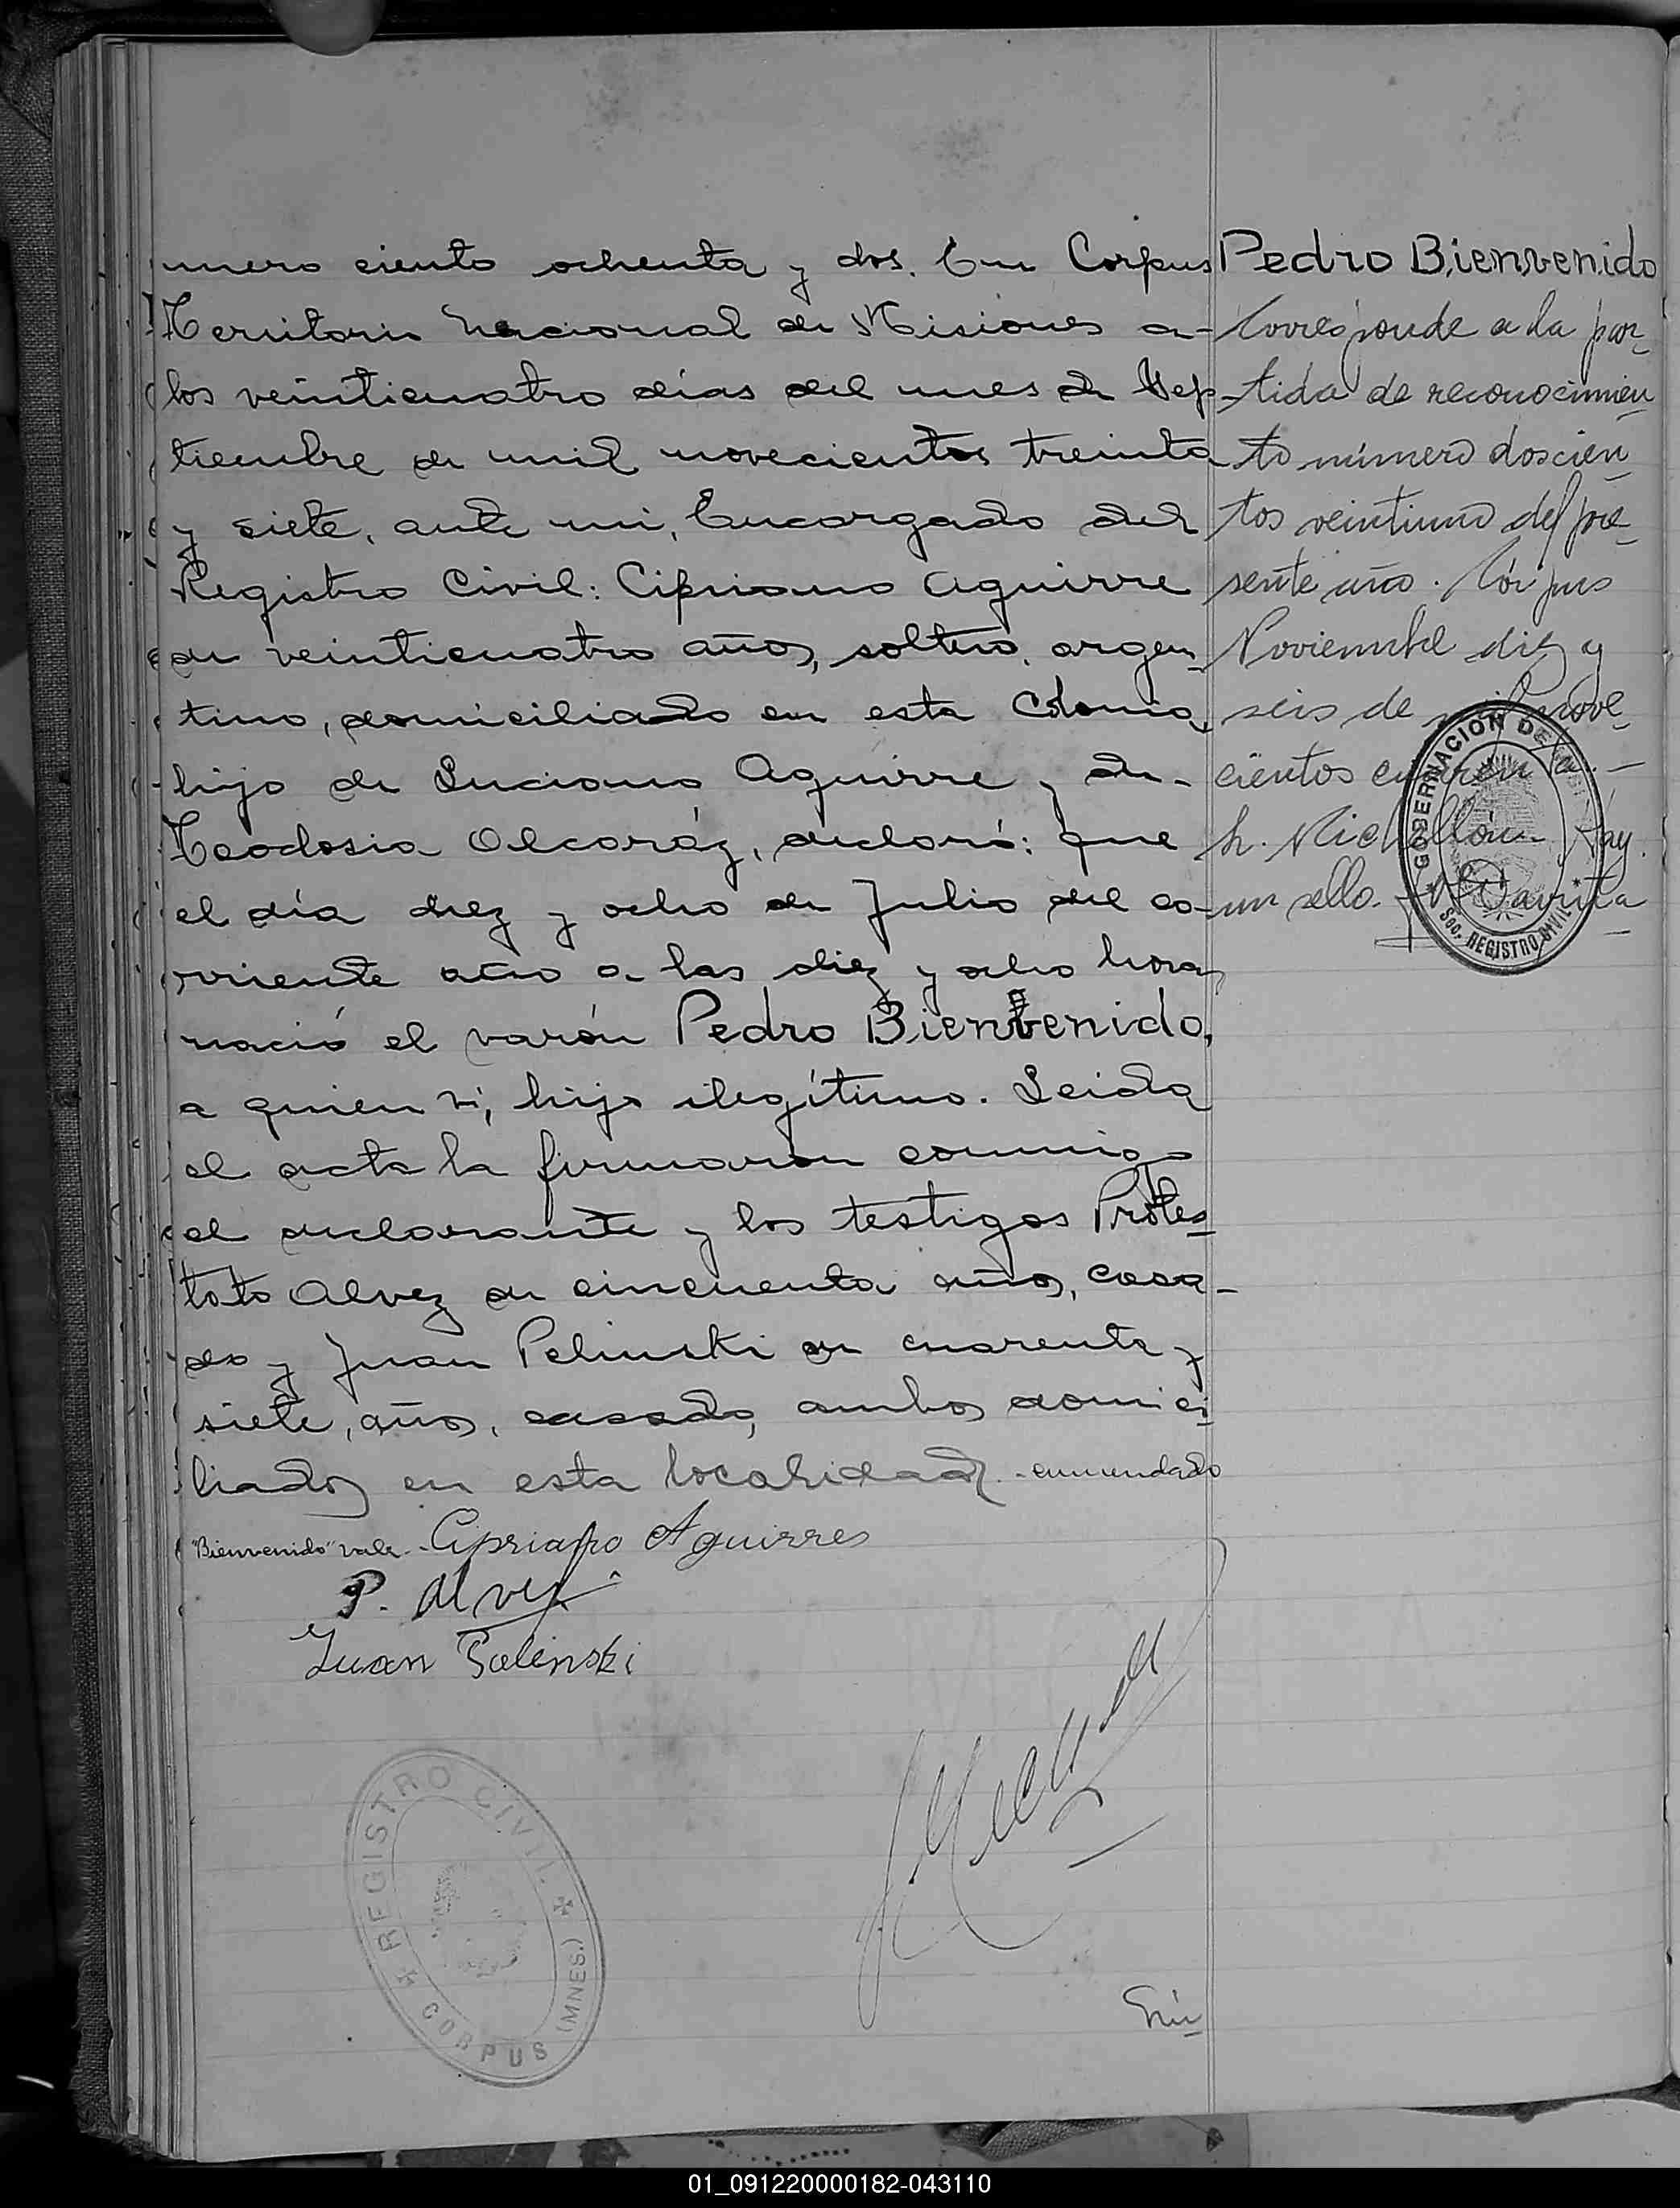 mero ciento ochenta y dos. En Corpus
Territorio Nacional de Misiones a
los veinticuatro días del mes de Sep
tiembre de mil novecientos treinta
y siete, ante mi, Encargado del
Registro Civil: Cipriano Aguirre
de veinticuatro años, soltero, argen
tino, domiciliado en esta Colonia,
hijo de Luciano Aguirre y de
Teodosia Alcaráz, declaró: que
el día diez y ocho de Julio del co
rriente año a las diez y ocho horas
nació el varón Pedro Bienvenido,
a quien ví, hijo ilegítimo. Leida
el acta la firmaron conmigo
el declarante y los testigos Protes
tato Alvez de cincuenta años, casa-
do y Juan Pelinski de cuarenta y
siete, años, casado, ambos domici
liados en esta localidad.-enmendado
"Bienvenido" vale.- Cipriano Aguirres
P. Alvez
Juan Palinski
REGISTRO CIVIL
CORPUS (MNES.)
Nú
Pedro Bienvenido
Corresponde a la par
tida de reconocimien
to número doscien
tos veintiuno del pre
sente año. Córpus
Noviembre diez y
seis de mil nove
cientos
h. Hay
un sello.
GOBERNACION DE
Sec. REGISTRO CIVIL
01_091220000182-043110